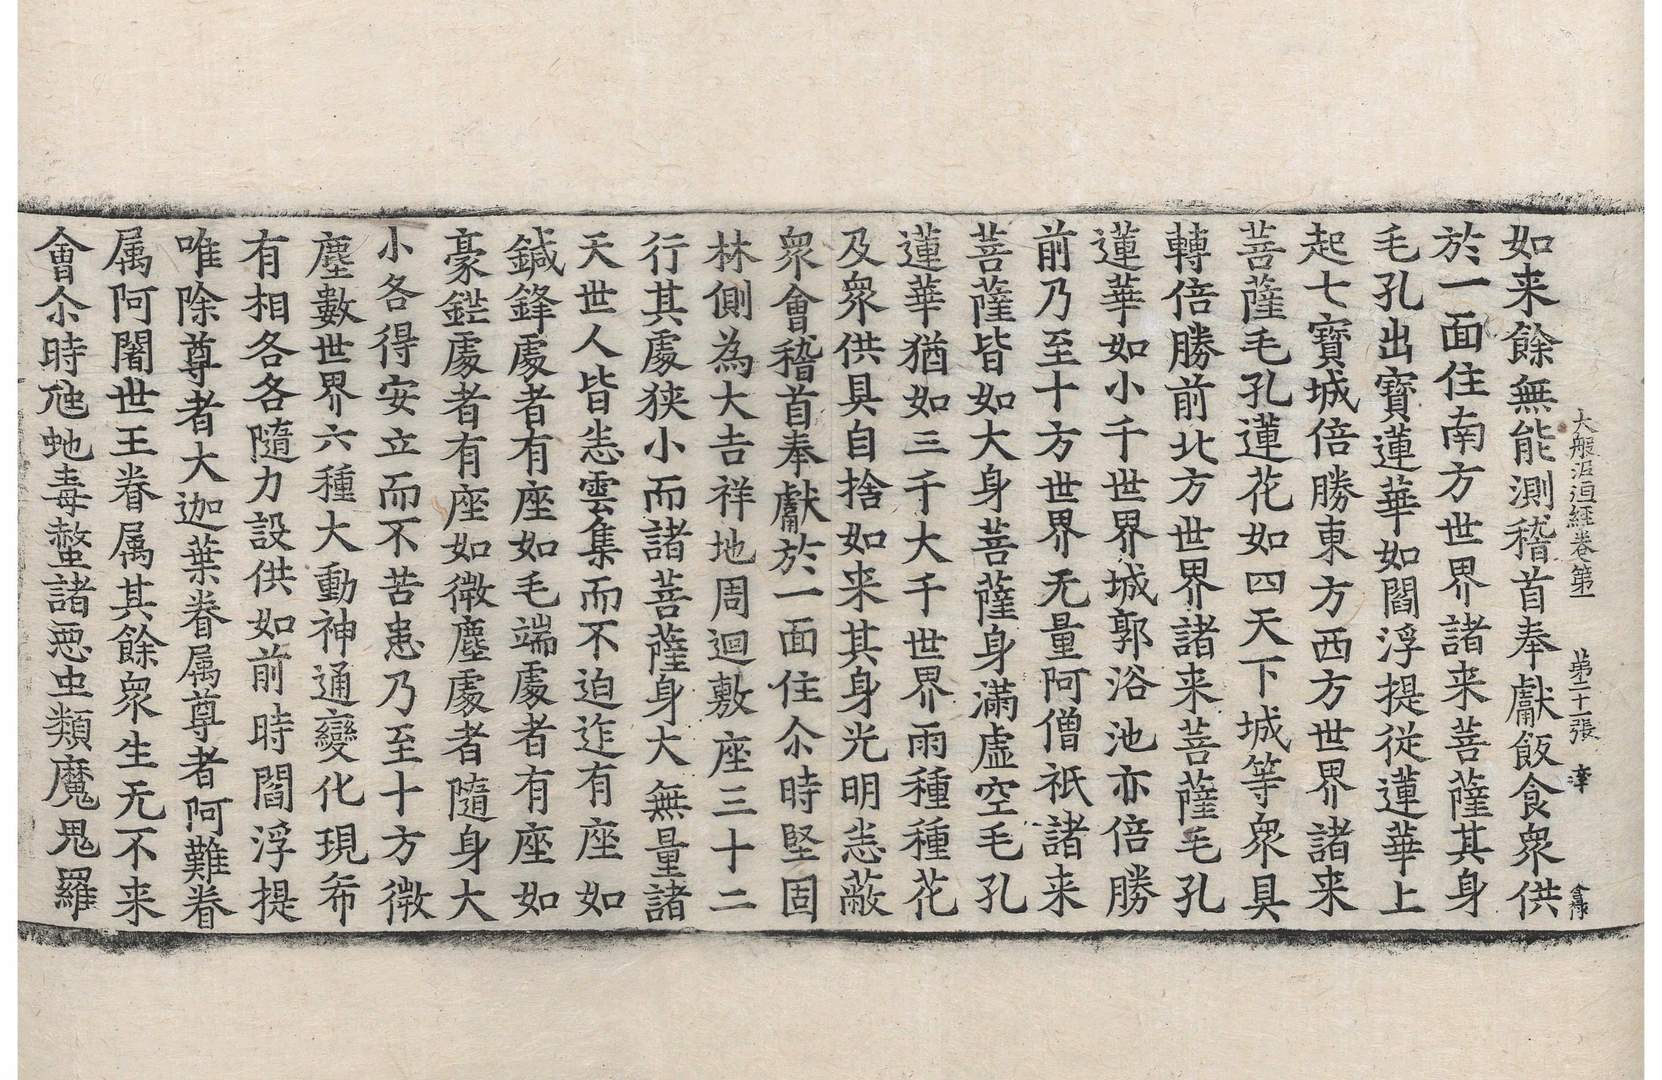 如来餘無能測稽首奉獻飯食衆供
大般泥洹經卷第一　第二十一張
於一面住南方世界諸来菩薩其身
毛孔出寶蓮華如閻浮提従蓮華上
起七寶城倍勝東方西方世界諸来
菩薩毛孔蓮花如四天下城等衆具
轉倍勝前北方世界諸来菩薩毛孔
蓮華如小千世界城郭浴池亦倍勝
前乃至十方世界无量阿僧祇諸来
菩薩皆如大身菩薩身滿虚空毛孔
蓮華猶如三千大千世界雨種種花
及衆供具自捨如来其身光明恙蔽
衆會稽首奉獻於一面住尒時堅固
林側為大吉祥地周迴敷座三十二
行其處狹小而諸菩薩身大無量諸
天世人皆恙雲集而不迫迮有座如
鍼鋒處者有座如毛端處者有座如
豪釐處者有座如微塵處者隨身大
小各得安立而不苦恚乃至十方微
塵數世界六種大動神通變化現希
有相各各隨力設供如前時閻浮提
唯除尊者大迦葉眷属尊者阿難眷
属阿闍世王眷属其餘衆生无不来
會尒時虺虵毒螫諸惡虫類魔鬼羅